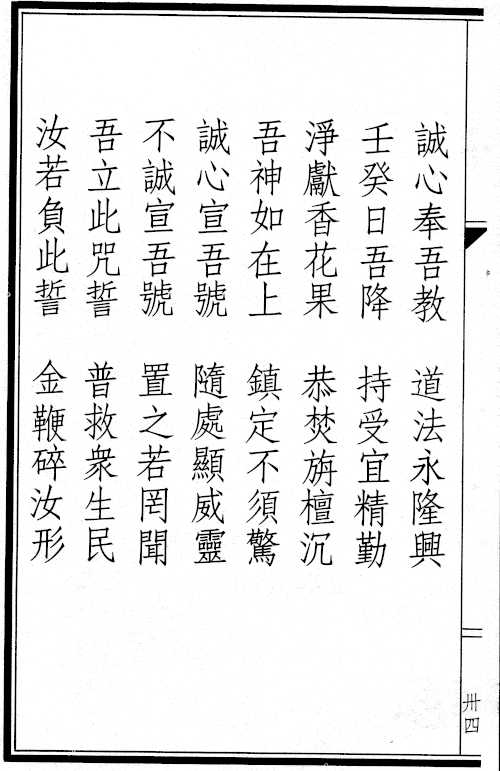 誠心奉吾教　道法永隆興
壬癸日吾降　持受宜精勤
淨獻香花果　恭焚旃檀沉
吾神如在上　鎮定不須驚
誠心宣吾號　隨處顯威靈
不誠宣吾號　置之若罔聞
吾立此咒誓　普救衆生民
汝若負此誓　金鞭碎汝形
卅四